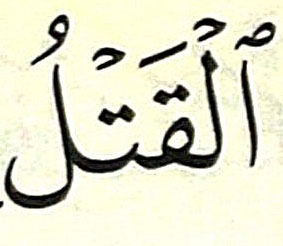 ٱلۡقَتۡلُ